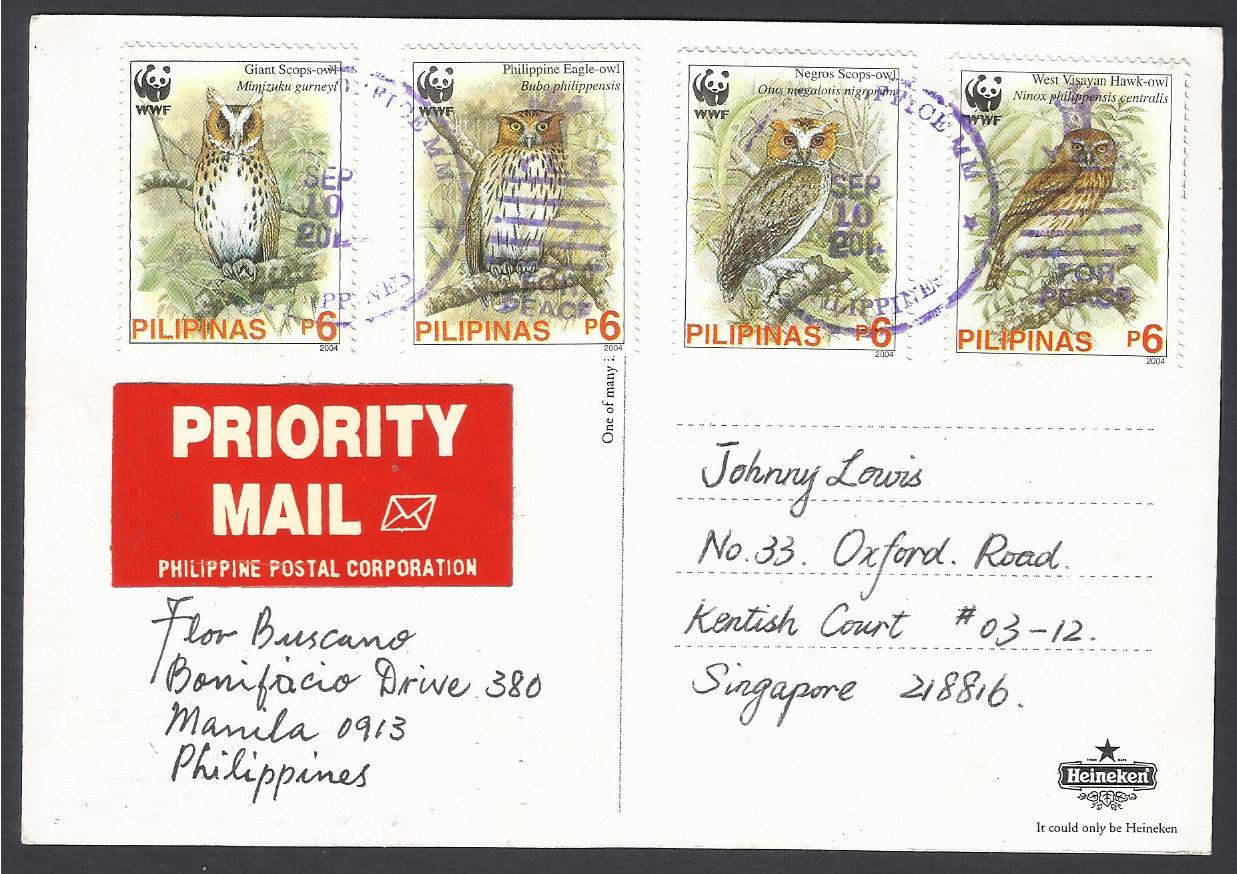 Giant Scops-owl
Mimizuku gurneyi
WWF
PILIPINAS P6
2004
Philippine Eagle-owl
Bubo philippensis
WWF
PILIPINAS P6
2004
Negros Scops-owl
Otus megalotis nigrorum
WWF
PILIPINAS P6
2004
West Visayan Hawk-owl
Ninox philippensis centralis
WWF
PILIPINAS P6
2004
SEP
10
FOR
PEACE
SEP
10
FOR
PEACE
One of many
PRIORITY
MAIL
PHILIPPINE POSTAL CORPORATION
Flor Buscano
Bonifacio Drive 380
Manila 0913
Philippines
Johnny Lowis
No.33. Oxford. Road.
Kentish Court #03-12.
Singapore 218816.
Heineken
It could only be Heineken